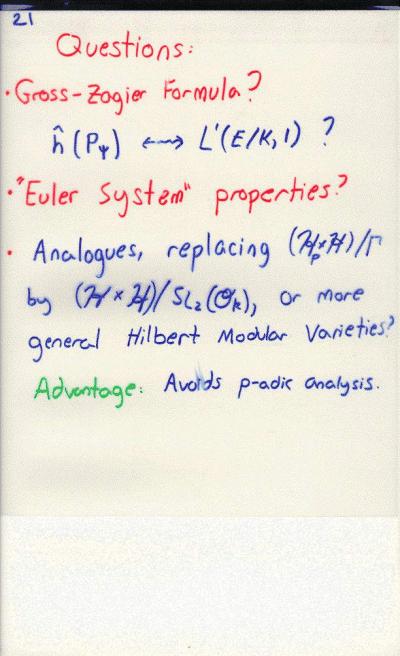 21
Questions:
• Gross-Zagier Formula?
ĥ(P_Ψ) ⟷ L'(E/K, 1) ?
• "Euler System" properties?
• Analogues, replacing (ℋ_p × ℋ)/Γ
by (ℋ × ℋ)/SL₂(𝒪_K), or more
general Hilbert Modular Varieties?
Advantage: Avoids p-adic analysis.